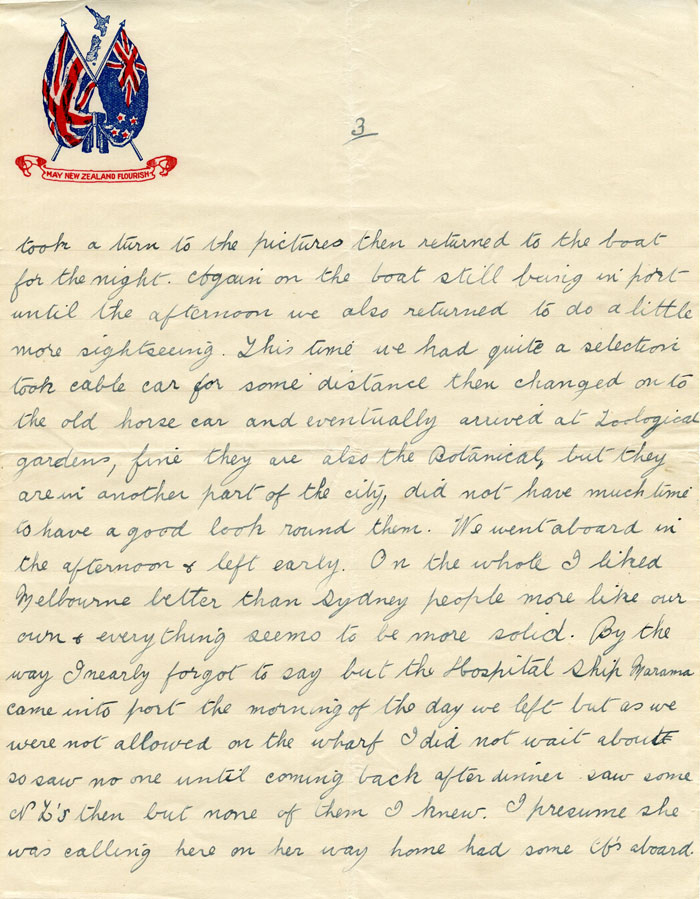 MAY NEW ZEALAND FLOURISH
3
took a turn to the pictures then returned to the boat
for the night. Again on the boat still being in port
until the afternoon we also returned to do a little
more sightseeing. This time we had quite a selection
took cable car for some distance then changed on to
the old horse car and eventually arrived at Zoological
gardens, fine they are also the Botanical, but they
are in another part of the city, did not have much time
to have a good look round them. We went aboard in
the afternoon & left early. On the whole I liked
Melbourne better than Sydney people more like our
own & everything seems to be more solid. By the
way I nearly forgot to say but the Hospital Ship Marama
came into port the morning of the day we left but as we
were not allowed on the wharf I did not wait about
so saw no one until coming back after dinner saw some
N Z's then but none of them I knew. I presume she
was calling here on her way home had some A's aboard.